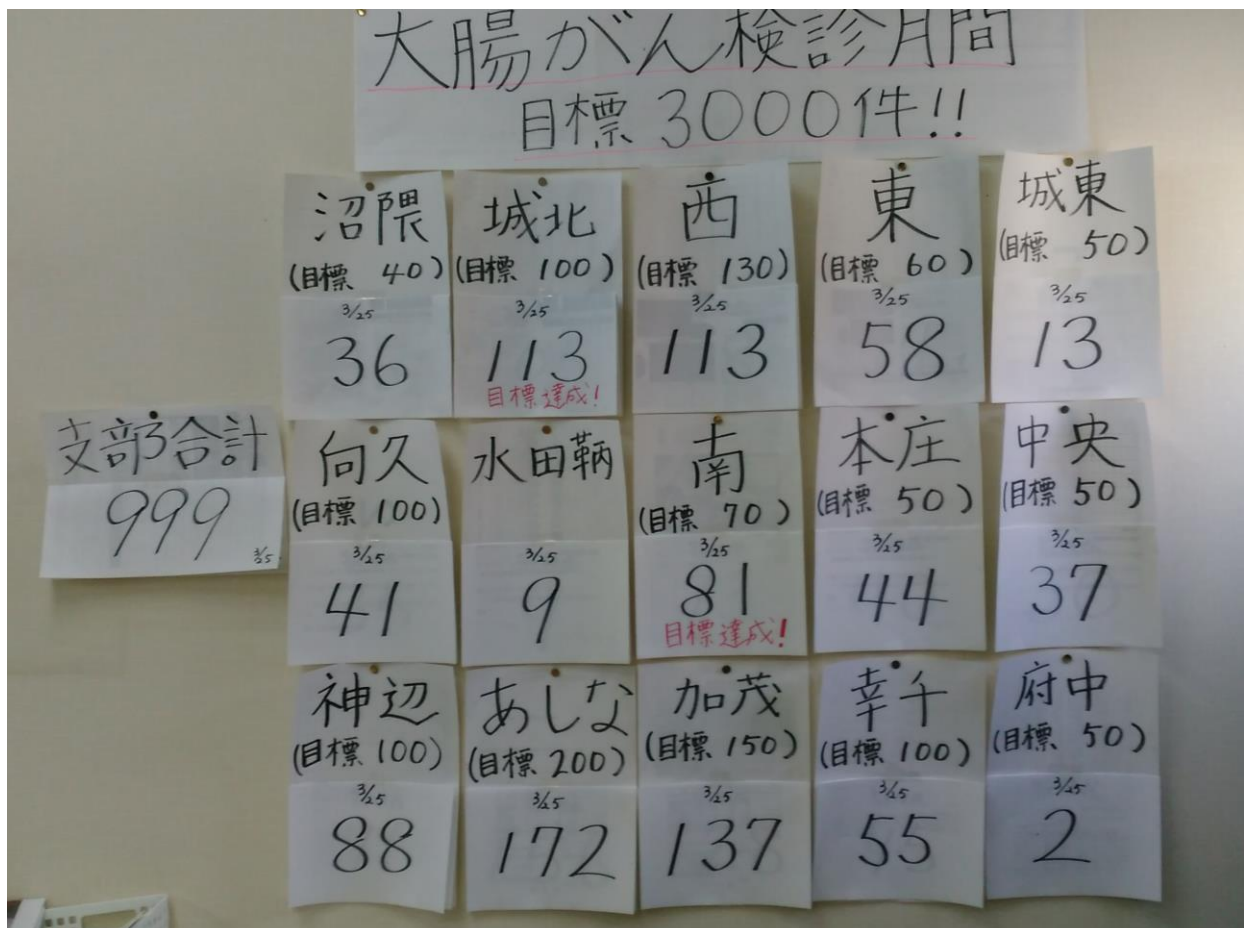 大腸がん検診月間
目標 3000件!!
沼隈
(目標 40)
3/25
36
城北
(目標 100)
3/25
113
目標達成!
西
(目標 130)
3/25
113
東
(目標 60)
3/25
58
城東
(目標 50)
3/25
13
支部合計
999
3/25
向久
(目標 100)
3/25
41
水田鞆
3/25
9
南
(目標 70)
3/25
81
目標達成!
本庄
(目標 50)
3/25
44
中央
(目標 50)
3/25
37
神辺
(目標 100)
3/25
88
あしな
(目標 200)
3/25
172
加茂
(目標 150)
3/25
137
幸千
(目標 100)
3/25
55
府中
(目標 50)
3/25
2